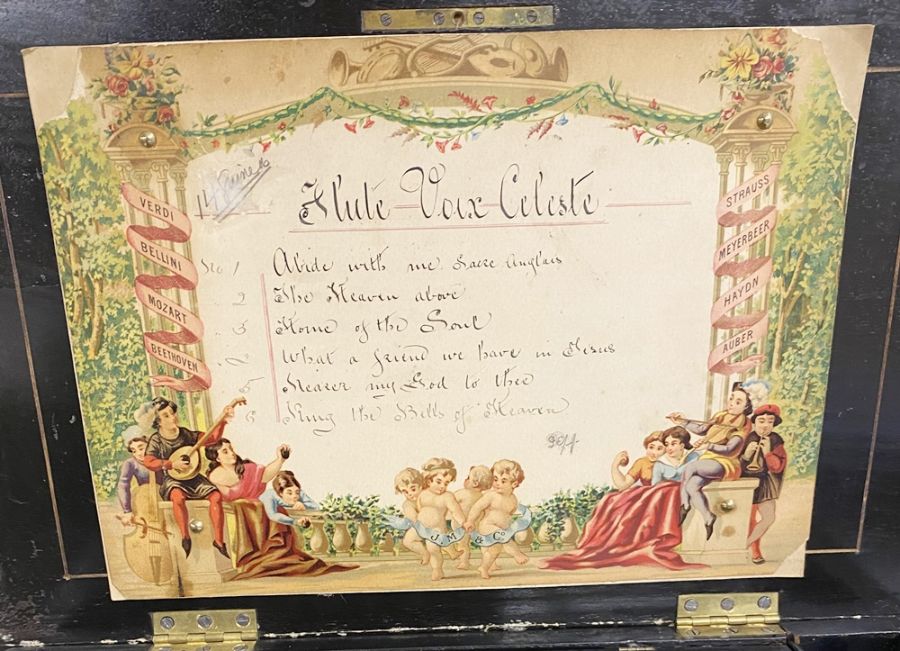 Flute Voix Celeste
VERDI
BELLINI
MOZART
BEETHOVEN
STRAUSS
MEYERBEER
HAYDN
AUBER
No. 1 Abide with me Sacre Anglais
2 The Heaven above
3 Home of the Soul
What a friend we have in Jesus
5 Nearer my God to thee
6 Ring the Bells of Heaven
J. M. & Co